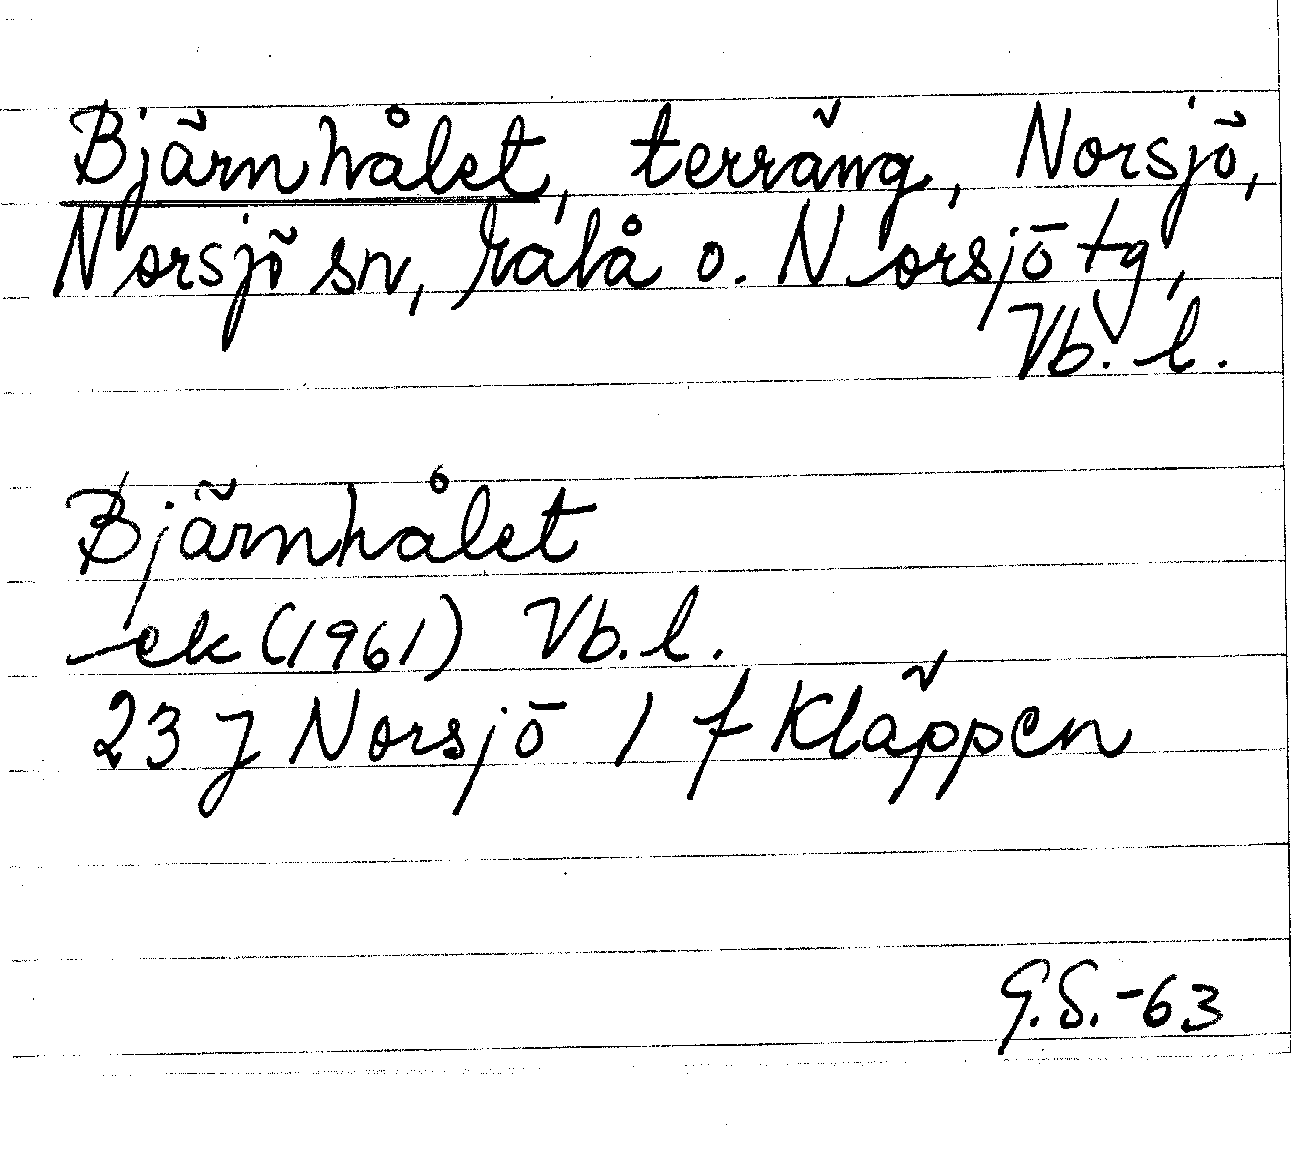 Bjärnhålet, terräng, Norsjö,
Norsjö sn, Malå o. Norsjö tg,
Vb. l.
Bjärnhålet
ek (1961) Vb. l.
23 J Norsjö 1 f Kläppen
G.S. -63